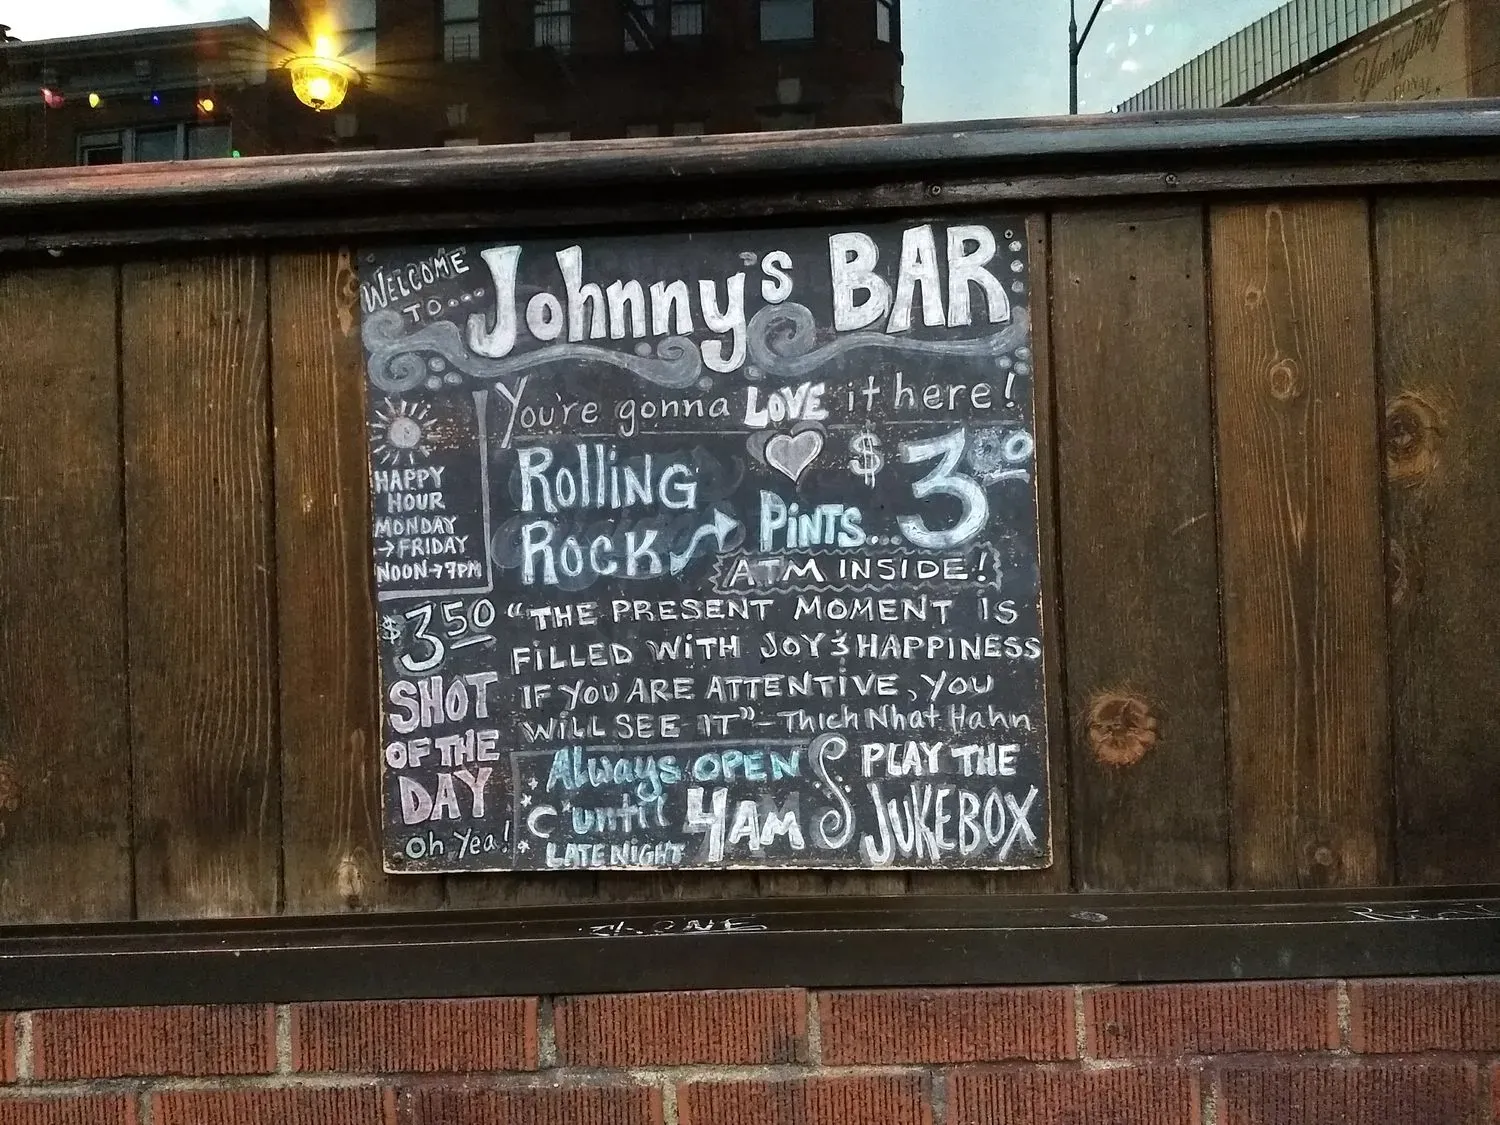 WELCOME
TO...
Johnny's BAR
You're gonna LOVE it here!
HAPPY
HOUR
MONDAY
→FRIDAY
NOON→7PM
Rolling
Rock → Pints... $3.00
ATM INSIDE!
$3.50
SHOT
OF THE
DAY
Oh Yea!
"THE PRESENT MOMENT IS
FILLED WITH JOY & HAPPINESS
IF YOU ARE ATTENTIVE, YOU
WILL SEE IT" - Thich Nhat Hahn
Always OPEN
'until 4AM
LATE NIGHT
PLAY THE
JUKEBOX
Yuengling